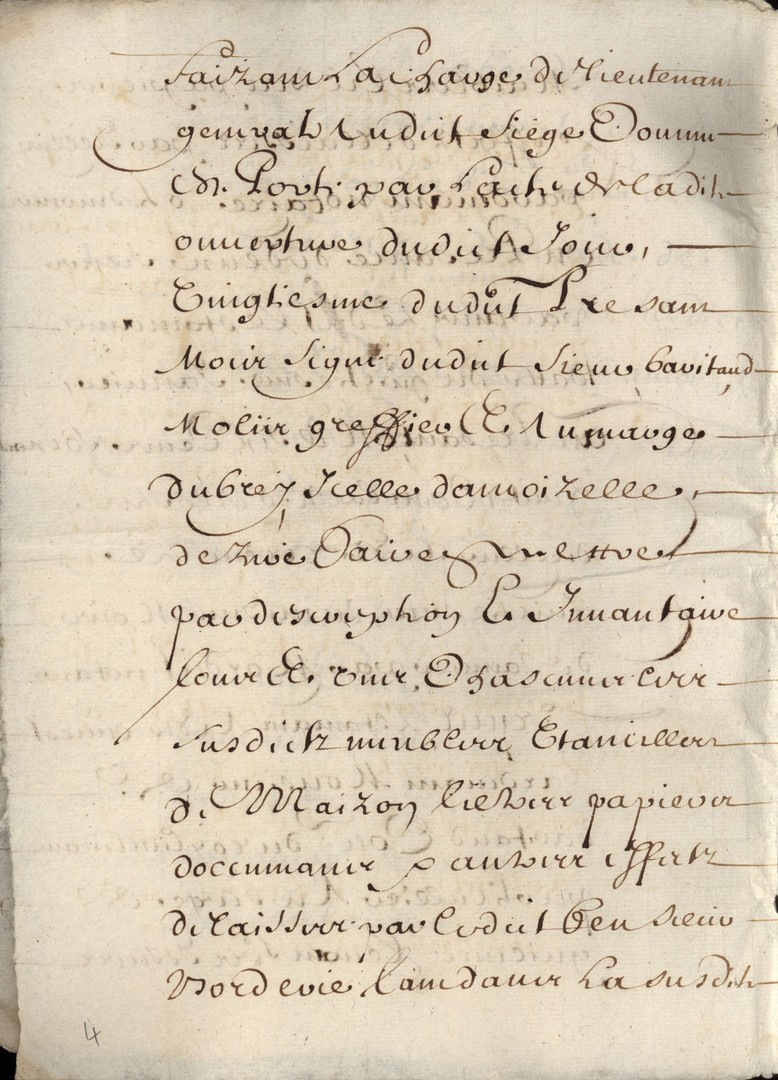 faizant la charge de lieutenant
general audict siege Donnee
Et Portee par l'acte de la dite
ouverture dudict Jour,
vingtiesme dudict Presant
Mois signe dudict sieur
Molier greffier Et au marge
du brey Icelle damoizelle
de faire mettre
par description Et Innantaire
tous Et uns Chascuns les
susdictz meubles Etancilles
De Maizon tiltres papiers
documans & aultres effectz
delaisses par ledict feu sieur
Borderie dans la susdite
4